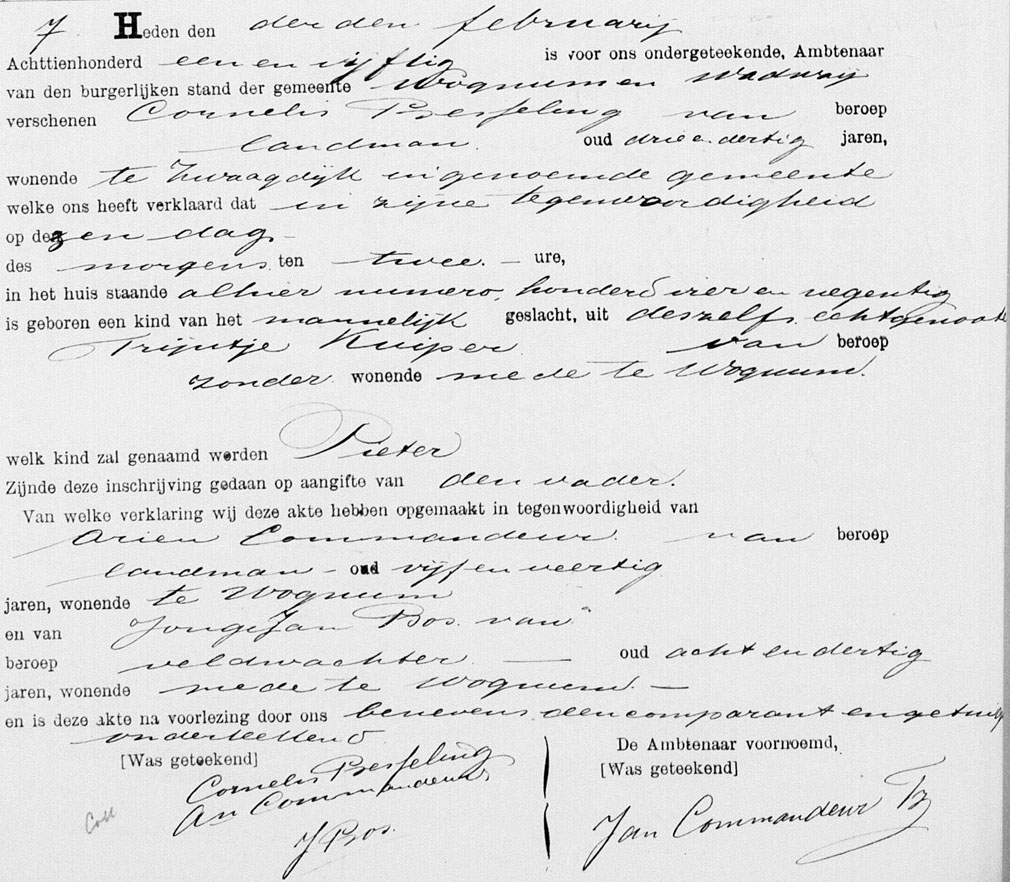 7 Heden den derden februarij
Achttienhonderd een en vijftig is voor ons ondergeteekende, Ambtenaar
van den burgerlijken stand der gemeente Wognum en Wadway
verschenen Cornelis Besseling van beroep
landman. oud drie en dertig jaren,
wonende te Zwaagdijk in genoemde gemeente
welke ons heeft verklaard dat in zijne tegenwoordigheid
op dezen dag –
des morgens ten twee. – ure,
in het huis staande alhier numero, honderd vier en negentig
is geboren een kind van het mannelijk geslacht, uit deszelfs echtgenoote
Trijntje Kuiper van beroep
zonder wonende mede te Wognum.
welk kind zal genaamd werden Pieter
Zijnde deze inschrijving gedaan op aangifte van den vader.
Van welke verklaring wij deze akte hebben opgemaakt in tegenwoordigheid van
Arien Commandeur. van beroep
landman – oud vijf en veertig
jaren, wonende te Wognum
en van JongeJan Bos. van
beroep veldwachter. — oud acht en dertig
jaren, wonende mede te Wognum. –
en is deze akte na voorlezing door ons benevens den comparant en getuig
onderteekend
[Was geteekend]
Cornelis Besseling
An Commandeur
J Bos.
De Ambtenaar voornoemd,
[Was geteekend]
Jan Commandeur Tz